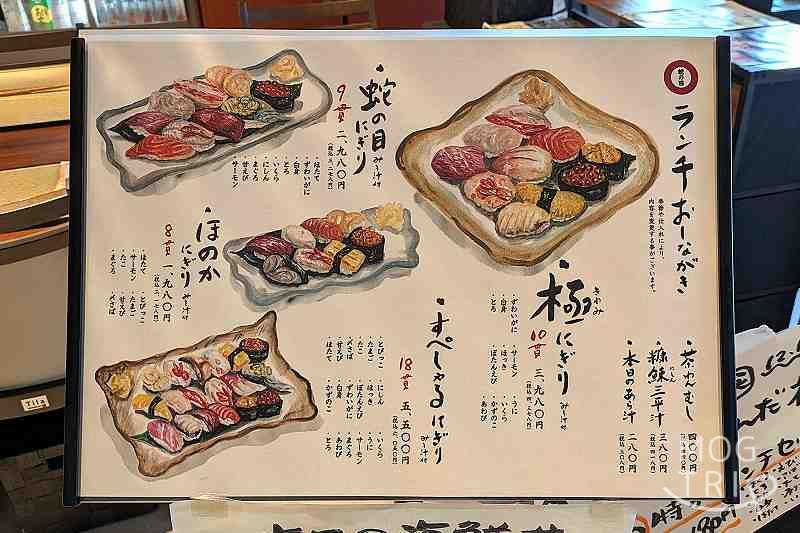 蛇の目
ランチおしながき
季節や仕入れにより、
内容を変更する事がございます。
茶わんむし
四〇〇円
糠鰊三平汁
三八〇円
(税込 四一八円)
本日のあら汁
二八〇円
(税込 三〇八円)
極にぎり
きわみ
みそ汁付
10貫
三、九八〇円
・ずわいがに
・白身
・とろ
・サーモン
・ほっき
・ぼたんえび
・うに
・いくら
・かずのこ
・あわび
蛇の目
にぎり
みそ汁付
9貫
二、九八〇円
(税込 三、二七八円)
・ほたて
・ずわいがに
・白身
・とろ
・いくら
・にしん
・まぐろ
・甘えび
・サーモン
ほのか
にぎり
みそ汁付
8貫
一、九八〇円
(税込 二、一七八円)
・ほたて
・サーモン
・たこ
・まぐろ
・とびっこ
・たまご
・甘えび
・〆さば
すぺしゃるにぎり
みそ汁付
18貫
五、五〇〇円
(税込 六、〇五〇円)
・とびっこ
・たまご
・たこ
・〆さば
・甘えび
・ほたて
・にしん
・ほっき
・ぼたんえび
・ずわいがに
・白身
・かずのこ
・いくら
・うに
・サーモン
・まぐろ
・あわび
・とろ
Tila
MOG
TRIP